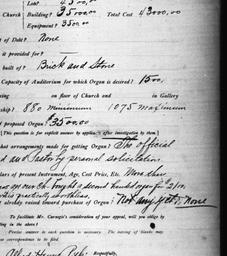 Lot?
Church Building? 35000.00 Total Cost 43000.00
Equipment? 3500.00
of Debt? None
it provided for?
built of? Brick and Stone
Capacity of Auditorium for which Organ is desired? 1500,
on floor of Church and in Gallery
880 minimum 1075 maximum
proposed Organ? $3500.00
[This question is for explicit answer by applicant after investigation by them]
hat arrangements made for getting Organ? The official
and Pastor by personal solicitation.
lars of present Instrument, Age, Cost Price, Etc. More than
ago our Ch. bought a second hand organ for $
practically worthless
t already raised toward purchase of Organ? Not any yet. None
To facilitate Mr. Carnegie's consideration of your appeal, will you oblige by
ling in the above?
Precise answer to each question is necessary. The leaving of blanks may
er correspondence to no filed.
Respectfully,